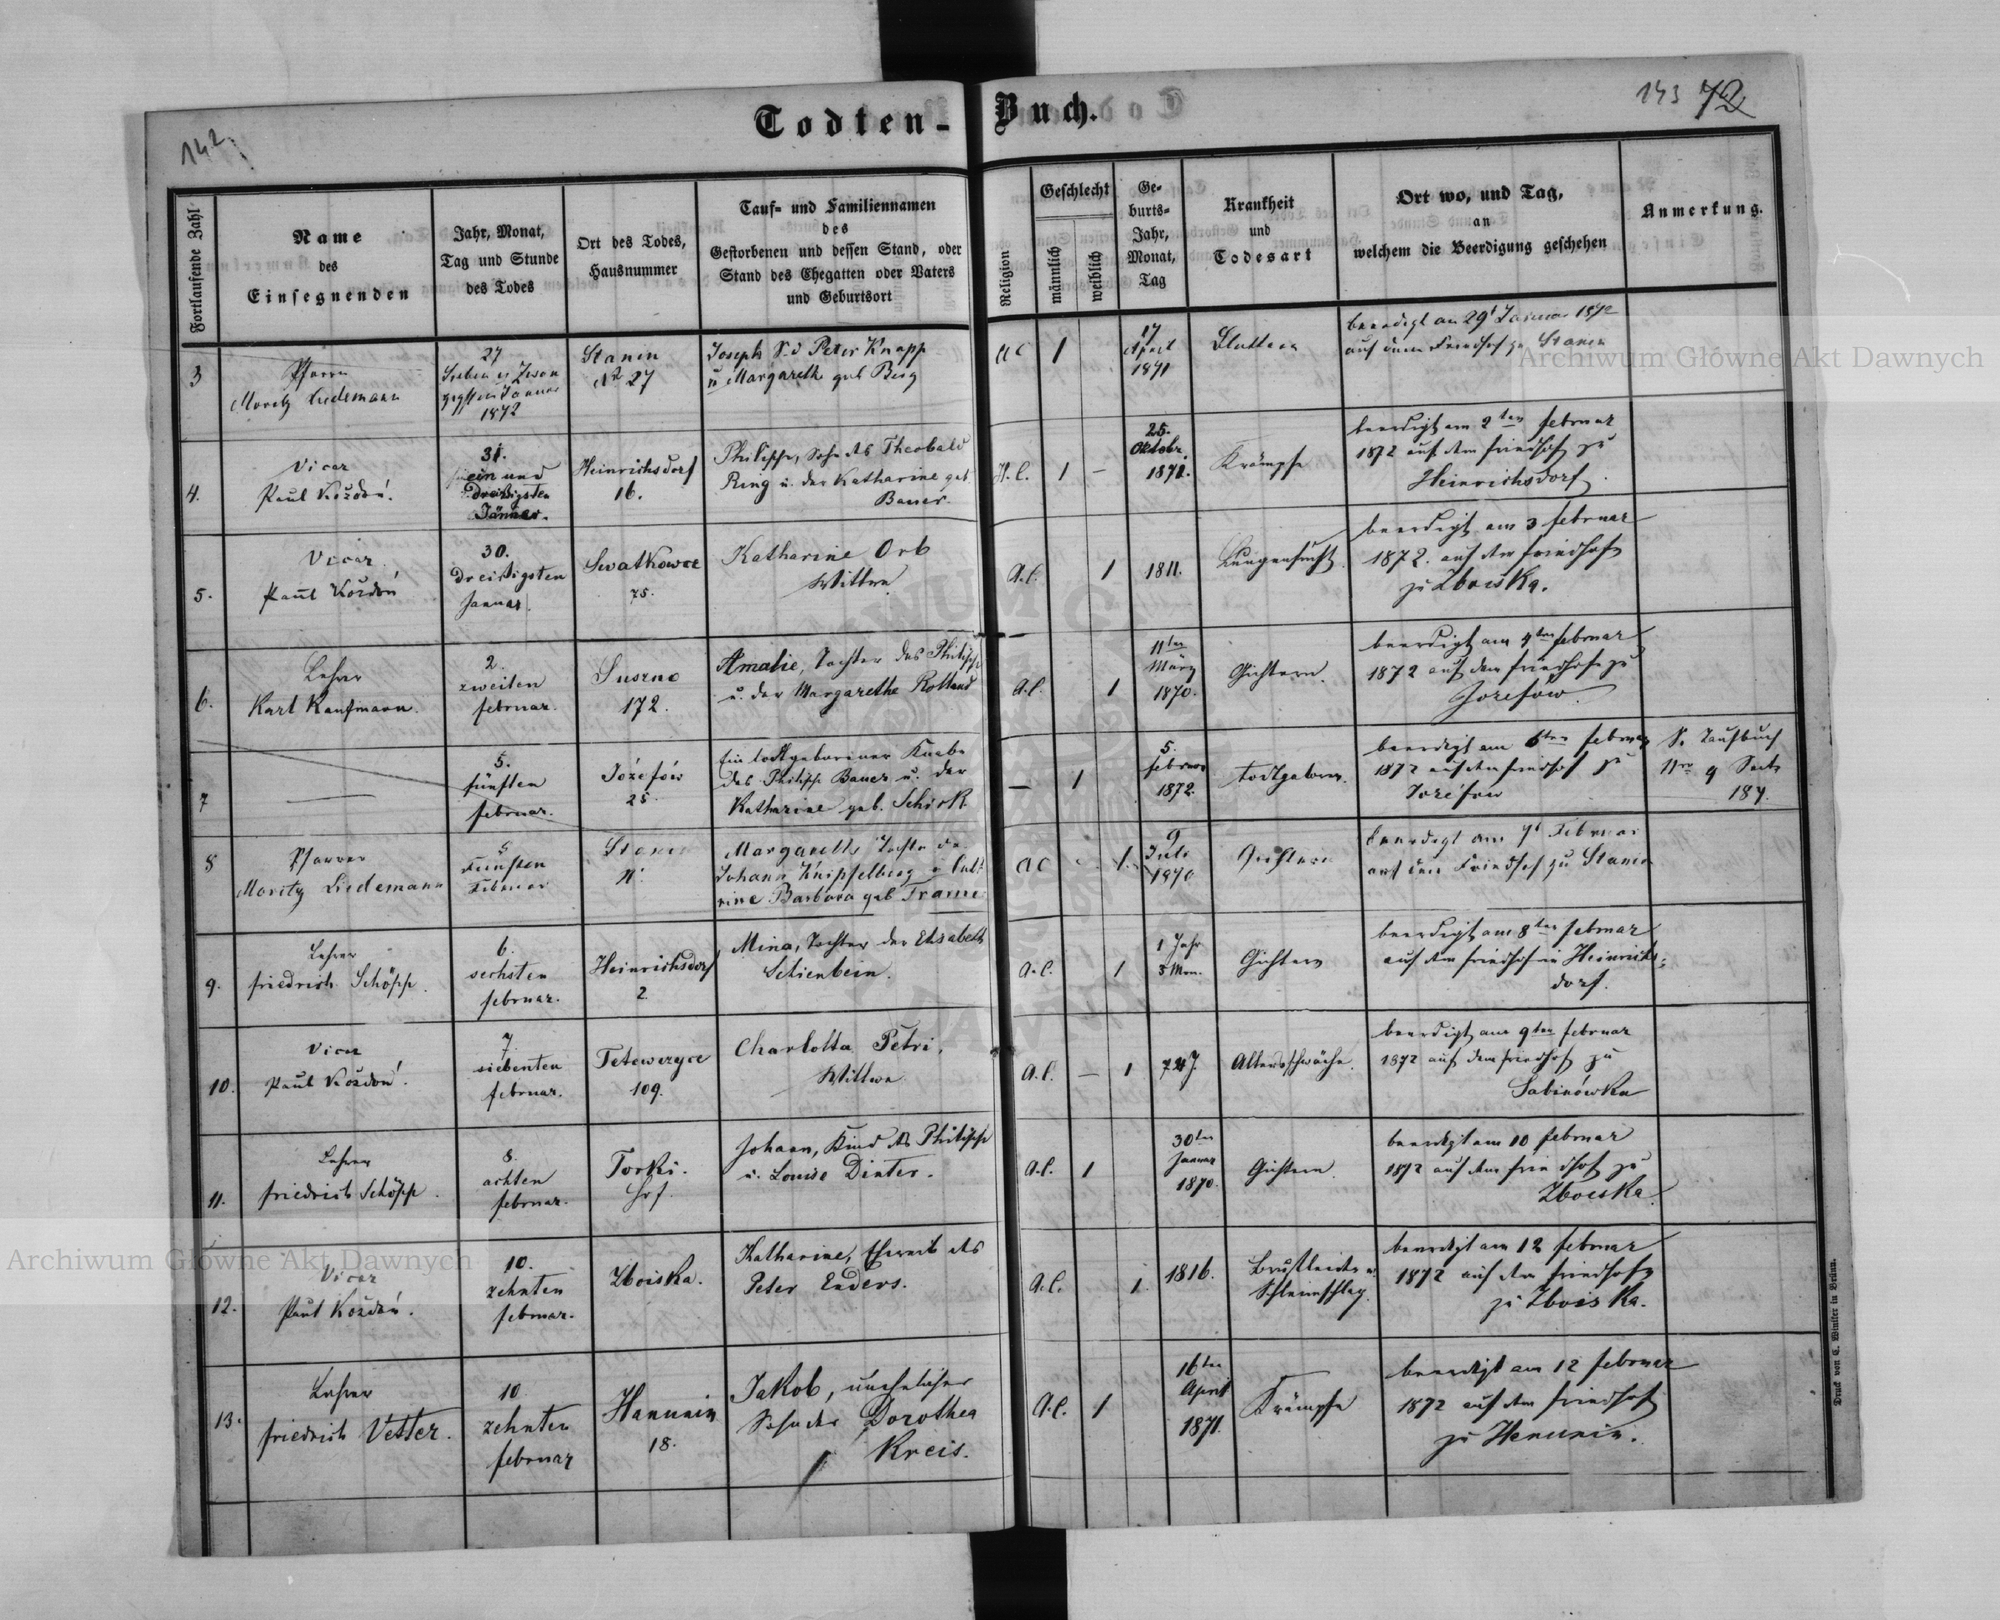 Todten-Buch.
142
143 72
Fortlaufende Zahl
Name
des
Einsegnenden
Jahr, Monat,
Tag und Stunde
des Todes
Ort des Todes,
Hausnummer
Tauf- und Familiennamen
des
Gestorbenen und dessen Stand, oder
Stand des Ehegatten oder Vaters
und Geburtsort
Religion
Geschlecht
männlich
weiblich
Ge-
burts-
Jahr,
Monat,
Tag
Krankheit
und
Todesart
Ort wo, und Tag,
an
welchem die Beerdigung geschehen
Anmerkung.
3
Pfarrer
Moritz Liedemann
27
Januar
1872
Stanin
No 27
Joseph S. d Peter Knapp
u Margareth geb Berg
AC
1
17
April
1871
beerdigt am 29t Januar 1872
auf dem Friedhof zu Stanin
4.
Vicar
Paul Koždoń.
31.
ein und
dreißigsten
Jänner.
Heinrichsdorf
16.
Philipp, Sohn des Theobald
Ring u. der Katharine geb.
Bauer.
H.C.
1
–
25.
Oktobr.
1871.
Krämpfe
beerdigt am 2ten februar
1872 auf dem friedhof zu
Heinrichsdorf.
5.
Vicar
Paul Koždoń
30.
dreißigsten
Januar.
Swatkowce
75.
Katharine Orb
Wittwe
A.C.
1
1811.
Lungensucht.
beerdigt am 3 februar
1872. auf dem friedhofe
zu Zboiska.
6.
Lehrer
Karl Kaufmann.
2.
zweiten
februar.
Suszno
172.
Amalie, Tochter des Philipp
u. der Margarethe Rolland
A.C.
1
11ten
März
1870.
Gichtern.
beerdigt am 4ten februar
1872 auf dem friedhofe zu
Jozefow.
7
—
5.
fünften
februar.
Józefów
25.
Ein todtgeborener Knabe
des Philipp Bauer u. der
Katharine geb. Schick
—
1
5.
februar
1872.
todtgeboren.
beerdigt am 6ten februar
1872 auf dem friedhof zu
Jozefow
S. Taufbuch
Nro 9 Seite
187.
8
Pfarrer
Moritz Liedemann
5
Fünften
Februar
Stanin
Margareth Tochter de
Johann Knipfelberg
rine Barbara geb
AC
1.
9
Juli
1870
Gichtern
beerdigt am 7t Februar
auf dem Friedhof zu Stanin
9.
Lehrer
friedrich Schöpp.
6.
sechsten
februar.
Heinrichsdorf
2.
Mina, Tochter der Elisabeth
Schienbein.
A.C.
1
1 Jahr
3 Mon.
Gichtern
beerdigt am 8ten februar
auf dem friedhof in Heinrichs-
dorf.
10.
Vicar
Paul Koždoń.
7.
siebenten
februar.
Tetewczyce
109.
Charlotta Petri,
Wittwe
A.C.
—
1
74 J.
Altersschwäche.
beerdigt am 9ten februar
1872 auf dem friedhof zu
Sabinówka
11.
Lehrer
friedrich Schöpp.
8.
achten
februar.
Torki.
Hof.
Johann, Kind des Philipp
u. Louise Dinter.
A.C.
1
30ten
Januar
1870.
Gichtern
beerdigt am 10 februar
1872 auf dem friedhof zu
Zboiska.
12.
Vicar
Paul Koždoń.
10.
zehnten
februar.
Zboiska.
Katharine, Eheweib des
Peter Enders.
A.C.
1.
1816.
Brustleiden u.
Schleimschlag.
beerdigt am 12 februar
1872 auf dem friedhofe
zu Zboiska.
13.
Lehrer
friedrich Vetter.
10
zehnten
februar
Hanunin
18.
Jakob, unehelicher
Sohn der Dorothea
Kreis.
A.C.
1
16ten
April
1871.
Krämpfe
beerdigt am 12 februar
1872 auf dem friedhof
zu Hanunin.
Druck von C. Winiker in Brünn.
Archiwum Główne Akt Dawnych
Archiwum Główne Akt Dawnych